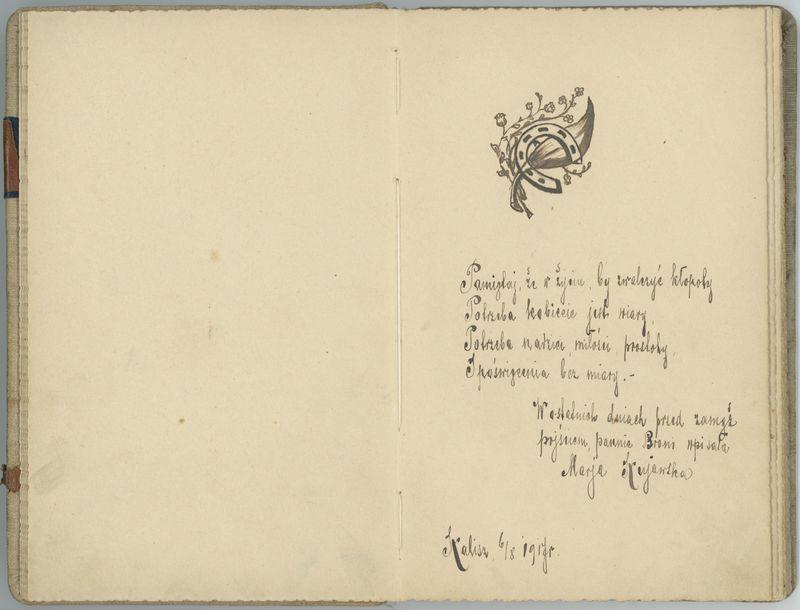 Pamiętaj, że w życiu, by zwalczyć kłopoty
Potrzeba kobiecie jest wiary,
Potrzeba nadziei, miłości, prostoty,
I poświęcenia bez miary. –
W ostatnich dniach przed zamąż
pójściem, pannie Broni wpisała
Marja Kujawska
Kalisz, 6/8 1917r.